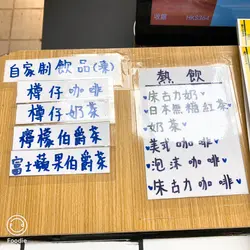 自家制飲品(凍)
樽仔咖啡
樽仔奶茶
檸檬伯爵茶
富士蘋果伯爵茶
熱飲
朱古力奶
日本無糖紅茶
奶茶
美式咖啡
泡沫咖啡
朱古力咖啡
Foodie